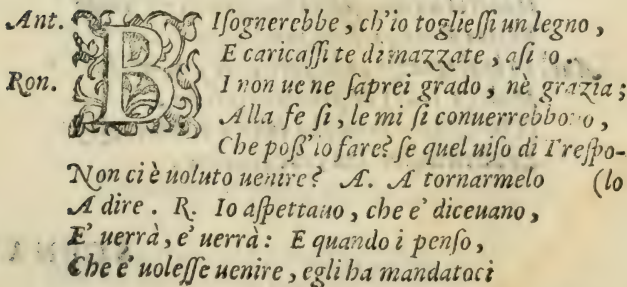 Ant. BIſognerebbe, ch'io toglieſſi un legno,
E caricaſſi te di mazzate, aſi o.
Ron. I non ue ne ſaprei grado, nè grazia;
Alla fe ſi, le mi ſi conuerrebbo o,
Che poſſ'io fare? ſe quel uiſo di Treſpo-
Non ci è uoluto uenire? A. A tornarmelo (lo
A dire. R. Io aſpettauo, che e' diceuano,
E' uerrà, e' uerrà: E quando i penſo,
Che e' uoleſſe uenire, egli ha mandatoci